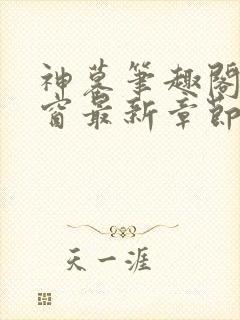 神墓笔趣阁
窗最新章节
天一涯